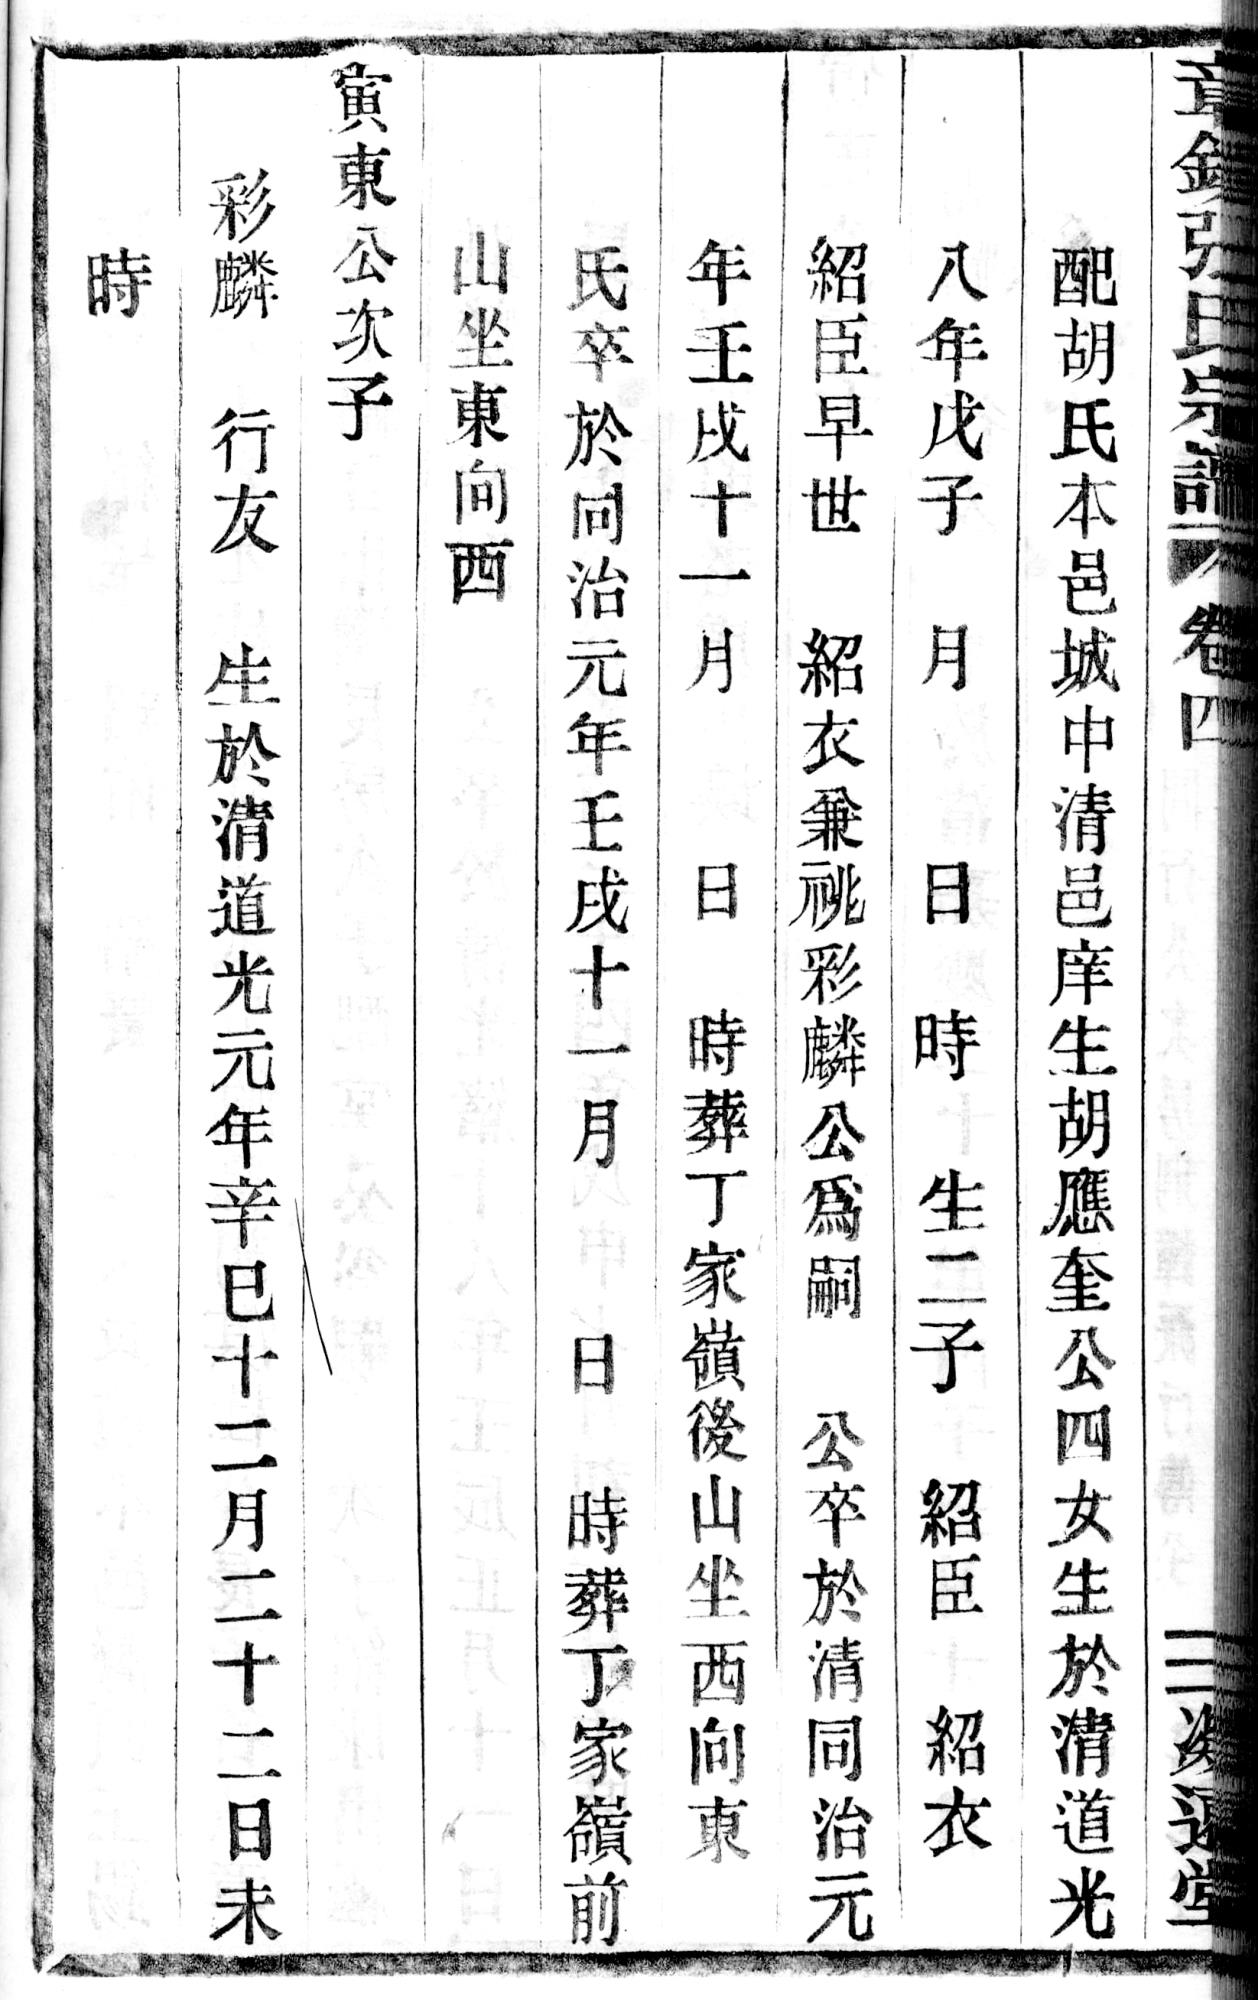 章鎮張氏宗譜 卷四 三 逸遠堂
配胡氏本邑城中清邑庠生胡應奎公四女生於清道光
八年戊子 月 日 時 生二子 紹臣 紹衣
紹臣早世 紹衣兼祧彩麟公為嗣 公卒於清同治元
年壬戌十一月 日 時葬丁家嶺後山坐西向東
氏卒於同治元年壬戌十一月 日 時葬丁家嶺前
山坐東向西
寅東公次子
彩麟 行友 生於清道光元年辛巳十二月二十二日未
時